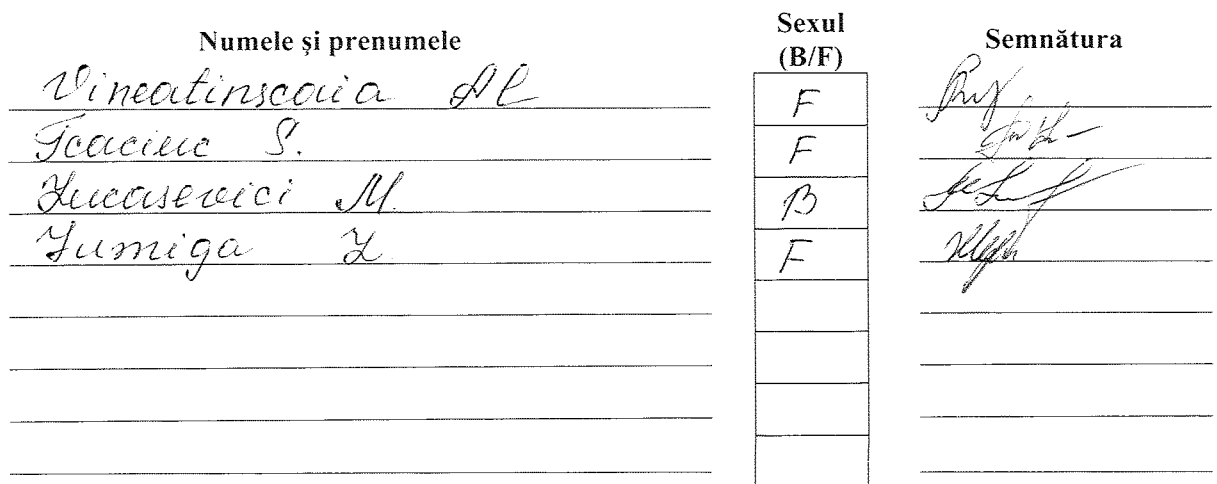 Numele și prenumele Sexul (B/F) Semnătura
Vineatinscaia Al F
Tcaciuc S. F
Lucasevici M. B
F